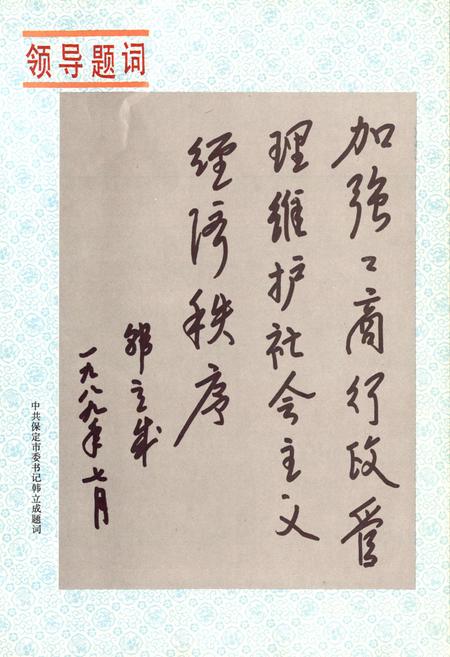 领导题词
加強工商行政管
理维护社会主义
经济秩序
韩立成
一九八九年七月
中共保定市委书记韩立成题词